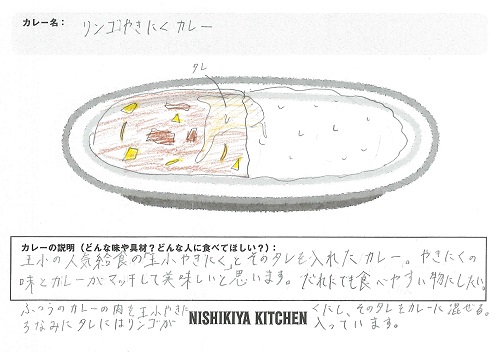 カレー名： リンゴやきにくカレー
タレ
カレーの説明（どんな味や具材？どんな人に食べてほしい？）：
玉小の人気給食の「玉小やきにく」とそのタレを入れたカレー。やきにくの
味とカレーがマッチして美味しいと思います。だれにでも食べやすい物にしたい。
ふつうのカレーの肉を玉小やきにくにし、そのタレをカレーに混ぜる。
ちなみにタレにはリンゴが入っています。
NISHIKIYA KITCHEN